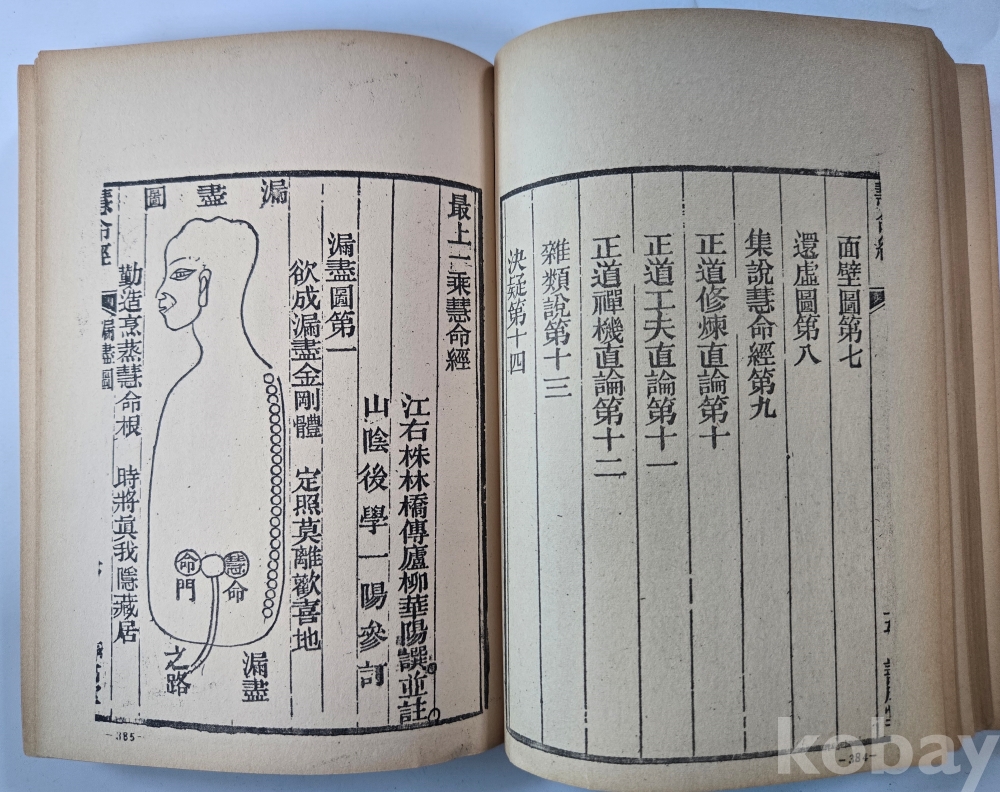 慧命經
面壁圖第七
還虛圖第八
集說慧命經第九
正道修煉直論第十
正道工夫直論第十一
正道禪機直論第十二
雜類說第十三
決疑第十四
-384-
最上一乘慧命經
江右株林橋傳廬柳華陽譔並註
山陰後學一陽參訂
漏盡圖第一
欲成漏盡金剛體 定照莫離歡喜地
漏盡圖
慧命
命門
漏盡
之路
勤造烹蒸慧命根 時將眞我隱藏居
慧命經
漏盡圖
-385-
kobay